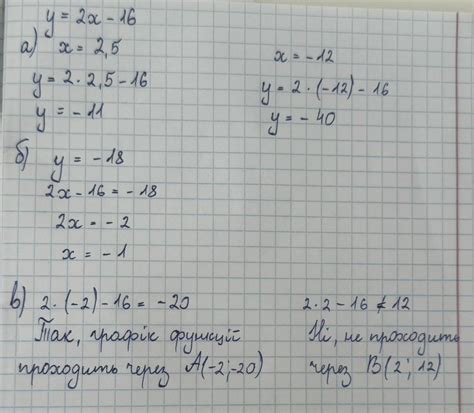 y = 2x - 16
а) x = 2,5
y = 2 · 2,5 - 16
y = - 11
x = - 12
y = 2 · (-12) - 16
y = - 40
б) y = - 18
2x - 16 = - 18
2x = - 2
x = - 1
в) 2 · (-2) - 16 = - 20
Так, графік функції
проходить через A(-2;-20)
2 · 2 - 16 ≠ 12
Ні, не проходить
через B(2; 12)